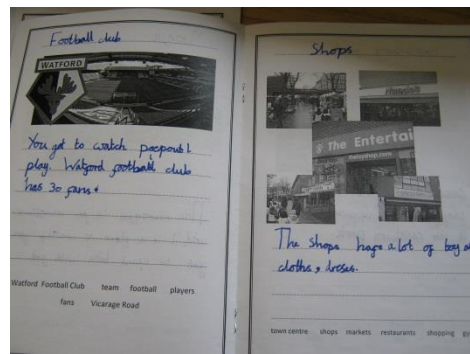 Football club
WATFORD
You get to watch
play. Watford football club
has 30 fans.
Watford Football Club team football players
fans Vicarage Road
Shops
The Entertai
thetoyshop.com
The shops have a lot of
cloths, dreses.
town centre shops markets restaurants shopping